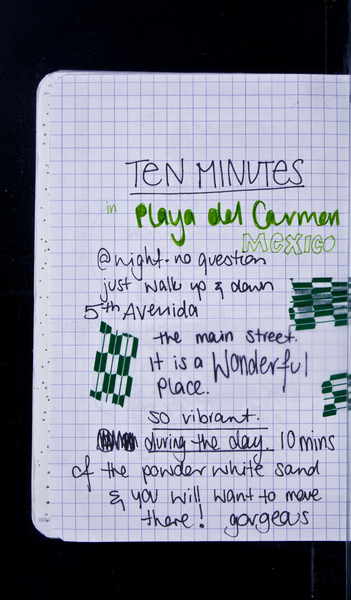 TEN MINUTES
in Playa del Carmen
MEXICO
@night. no question
just walk up & down
5th Avenida
the main street.
It is a Wonderful
Place.
so vibrant.
during the day. 10 mins
of the powder white sand
& you will want to move
there! gorgeous